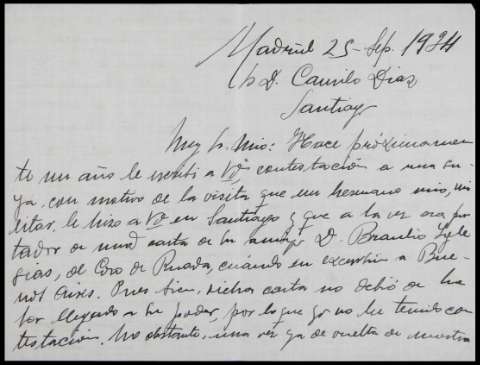 Madrid 25-Sep. 1934
Sr D. Camilo Diaz
Santiago
Muy Sr. Mio: Hace próximamen
te un año le escribi a Vd contestación a una su-
ya, con motivo de la visita que un hermano mio, mi
litar, le hizo a Vd en Santiago y que a la vez era por
tador de una carta de su amigo D. Braulio
de Ruada, cuando en excursión a Bue-
nos Aires. Pues bien, dicha carta no debió de ha
ber llegado a su poder, por lo que yo no he tenido con
testación. No obstante, una vez ya de vuelta de nuestra